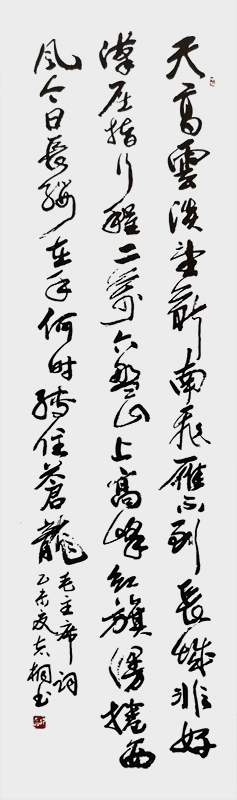 天高雲淡望斷南飛雁不到長城非好
漢屈指行程二萬六盤山上高峰紅旗漫捲西
風今日長纓在手何时縛住蒼龍
毛主席词
乙未夏桐书